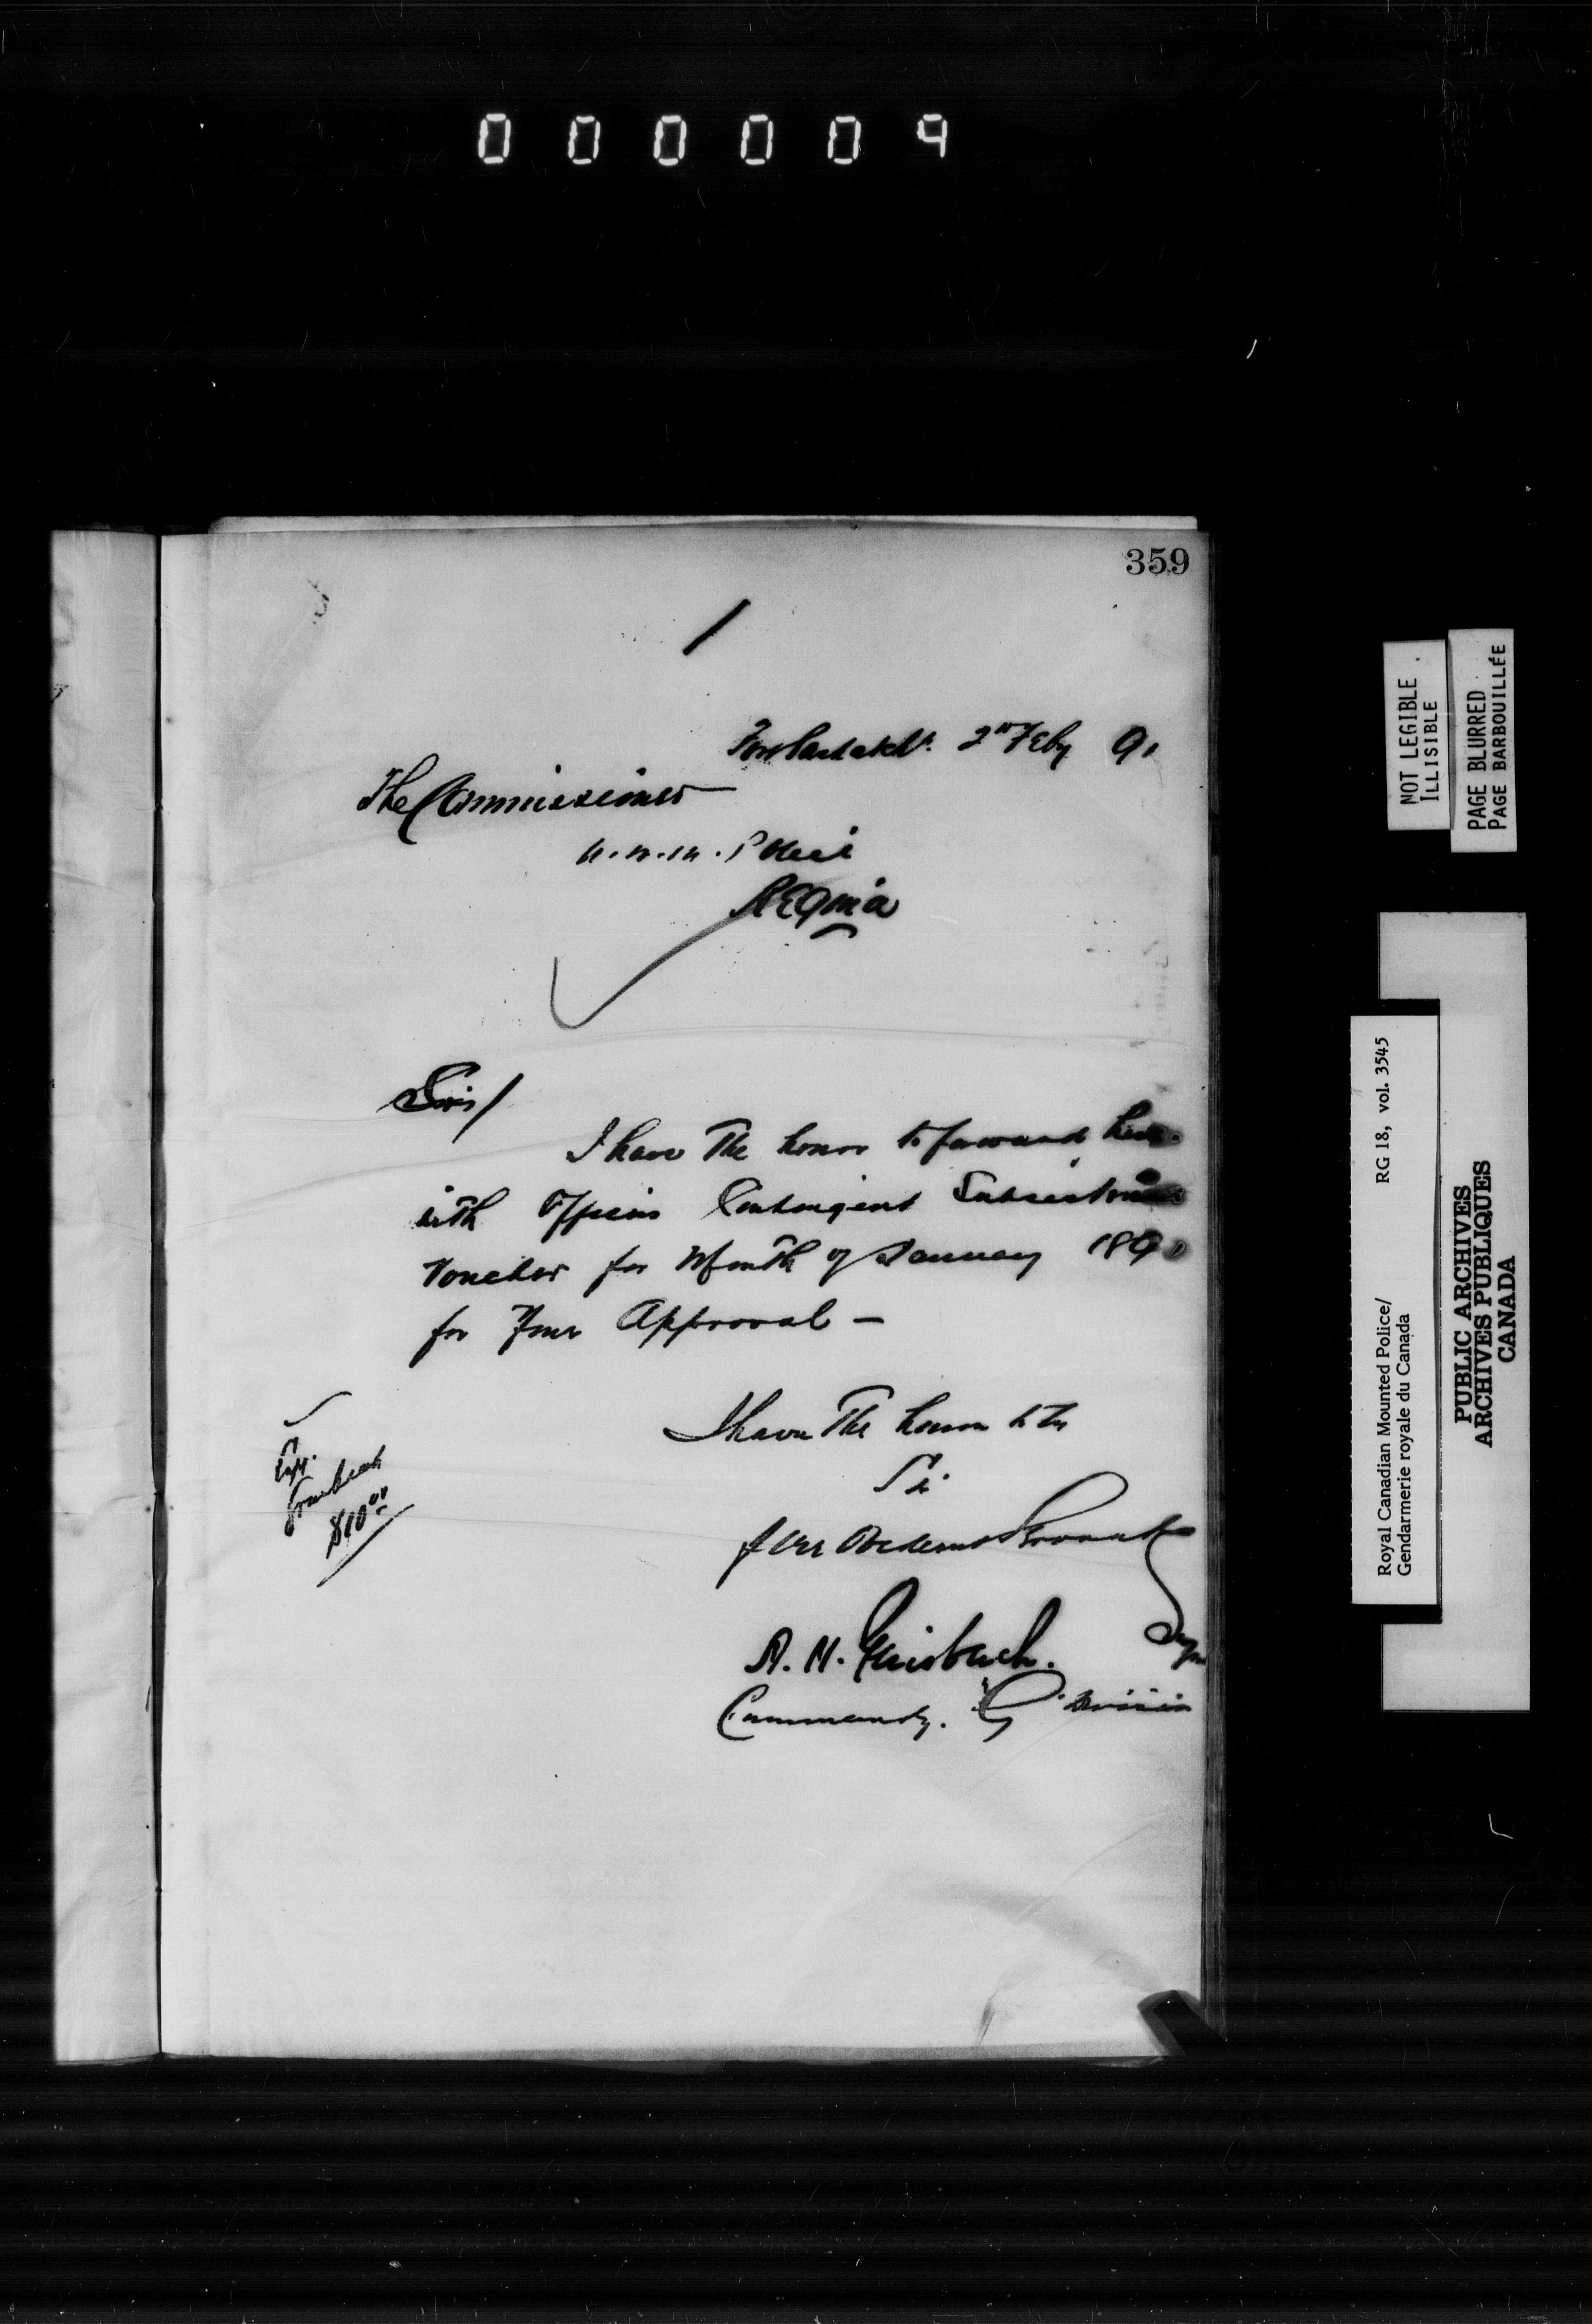 000009
359
/
Fort Saskatn. 2nd Feby 91
The Commissioner
N.W.M. Police
Regina
Sir/
I have the honor to forward here-
with Officers Contingent Subsistence
Voucher for Month of January 1891
for Your Approval —
I have the honor to be
Sir
Your Obedient Servant
A. H. Griesbach. Supt
Commandg. "G" Division
$10.00
NOT LEGIBLE
ILLISIBLE
PAGE BLURRED
PAGE BARBOUILLÉE
Royal Canadian Mounted Police/ RG 18, vol. 3545
Gendarmerie royale du Canada
PUBLIC ARCHIVES
ARCHIVES PUBLIQUES
CANADA